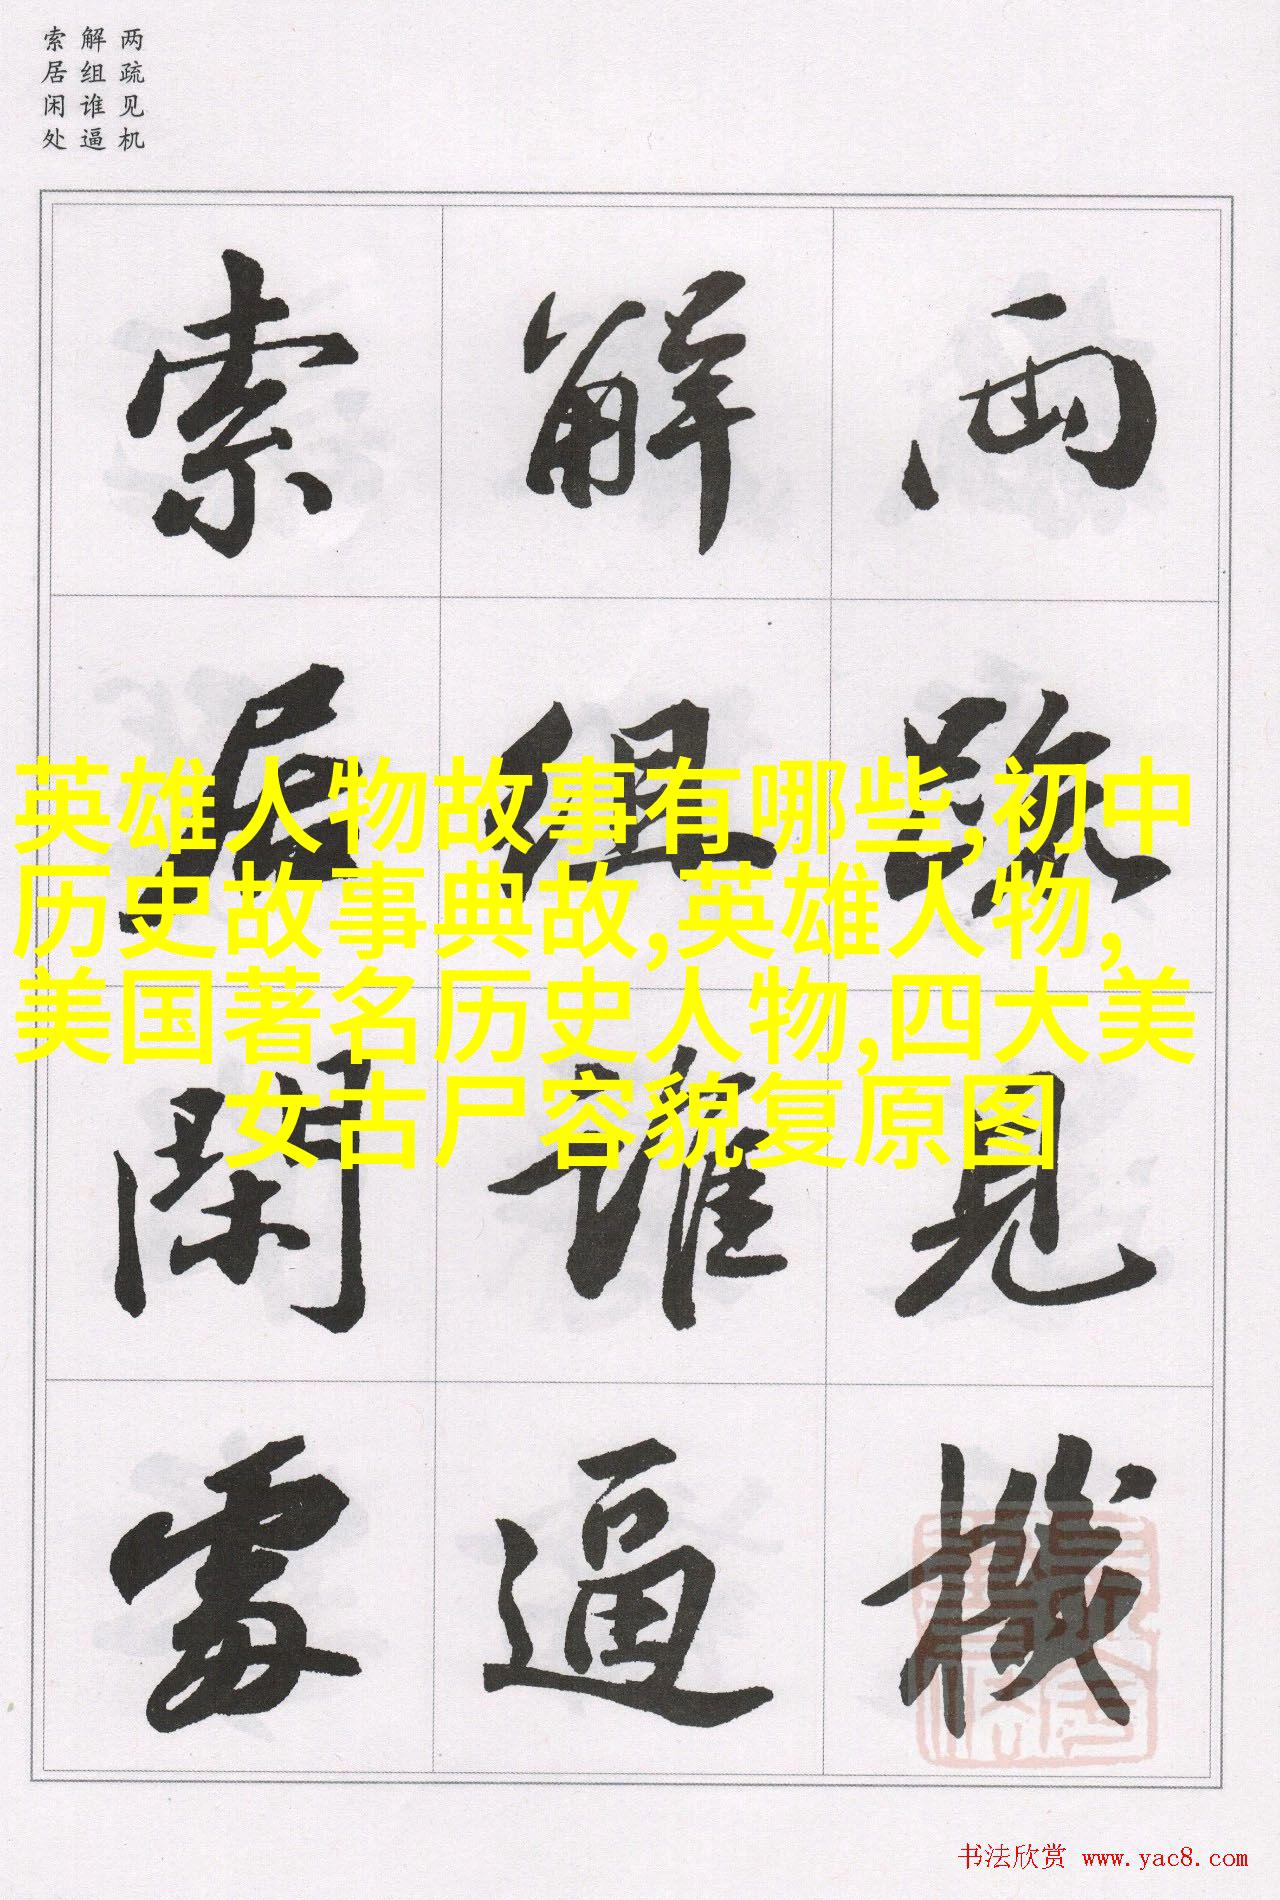 两疏见机
解组谁逼
索居闲处
兩疏見機
解组誰逼
索居閑處
英雄人物故事有哪些,初中
历史故事典故,英雄人物,
美国著名历史人物,四大美
女古尸容貌复原图
书法欣赏 www.yac8.com